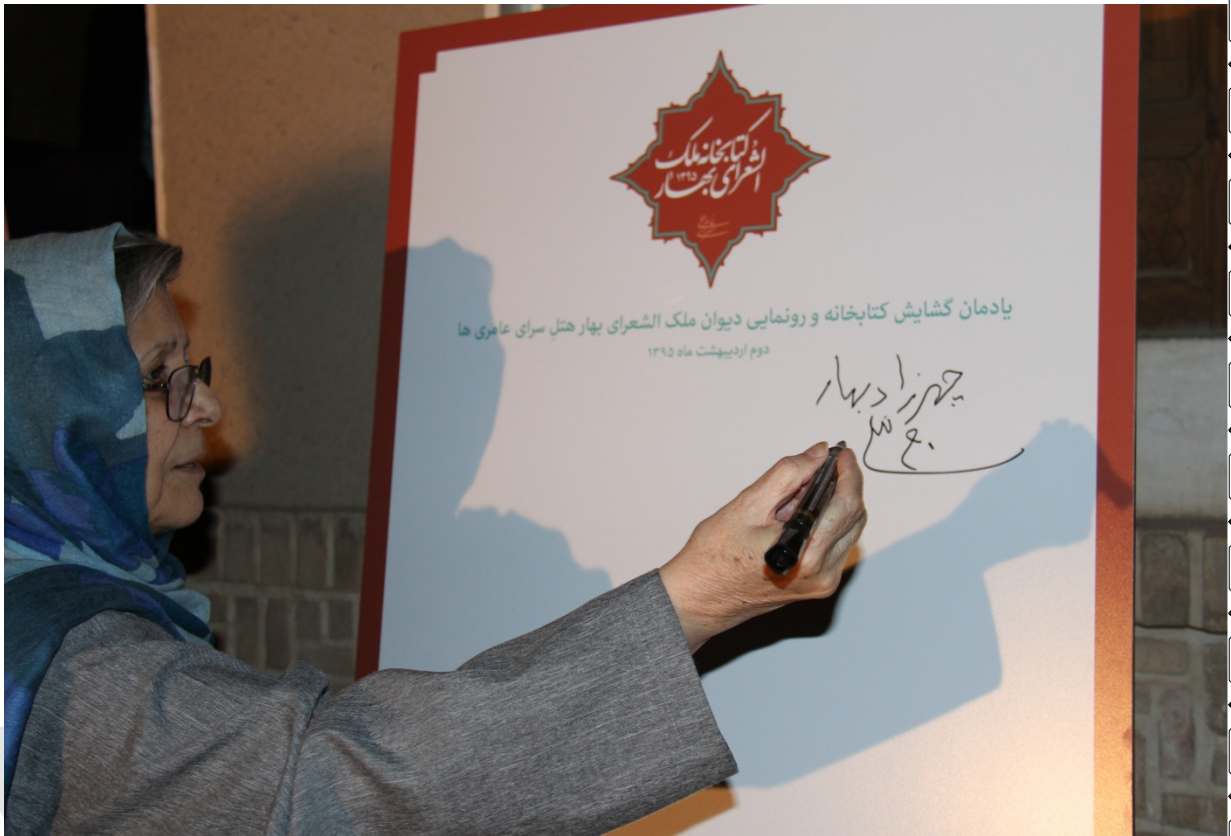 کتابخانه ملک
الشعرای بهار
۱۳۹۵
یادمان گشایش کتابخانه و رونمایی دیوان ملک الشعرای بهار هتلِ سرای عامری ها
دوم اردیبهشت ماه ۱۳۹۵
چهرزاد بهار